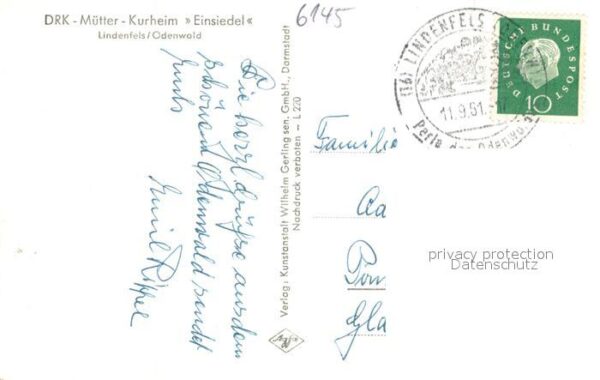 DRK - Mütter - Kurheim »Einsiedel«
Lindenfels/Odenwald
6145
(16) LINDENFELS
11.9.61.
Perle des Odenwa
DEUTSCHE BUNDESPOST
10
Die herzl. Grüße aus dem
schönen Odenwald sendet
Euch
Emil Rippel
Verlag: Kunstanstalt Wilhelm Gerling sen. GmbH., Darmstadt
Nachdruck verboten – L 220
Familie
Aa
Pom
Gla
privacy protection
Datenschutz